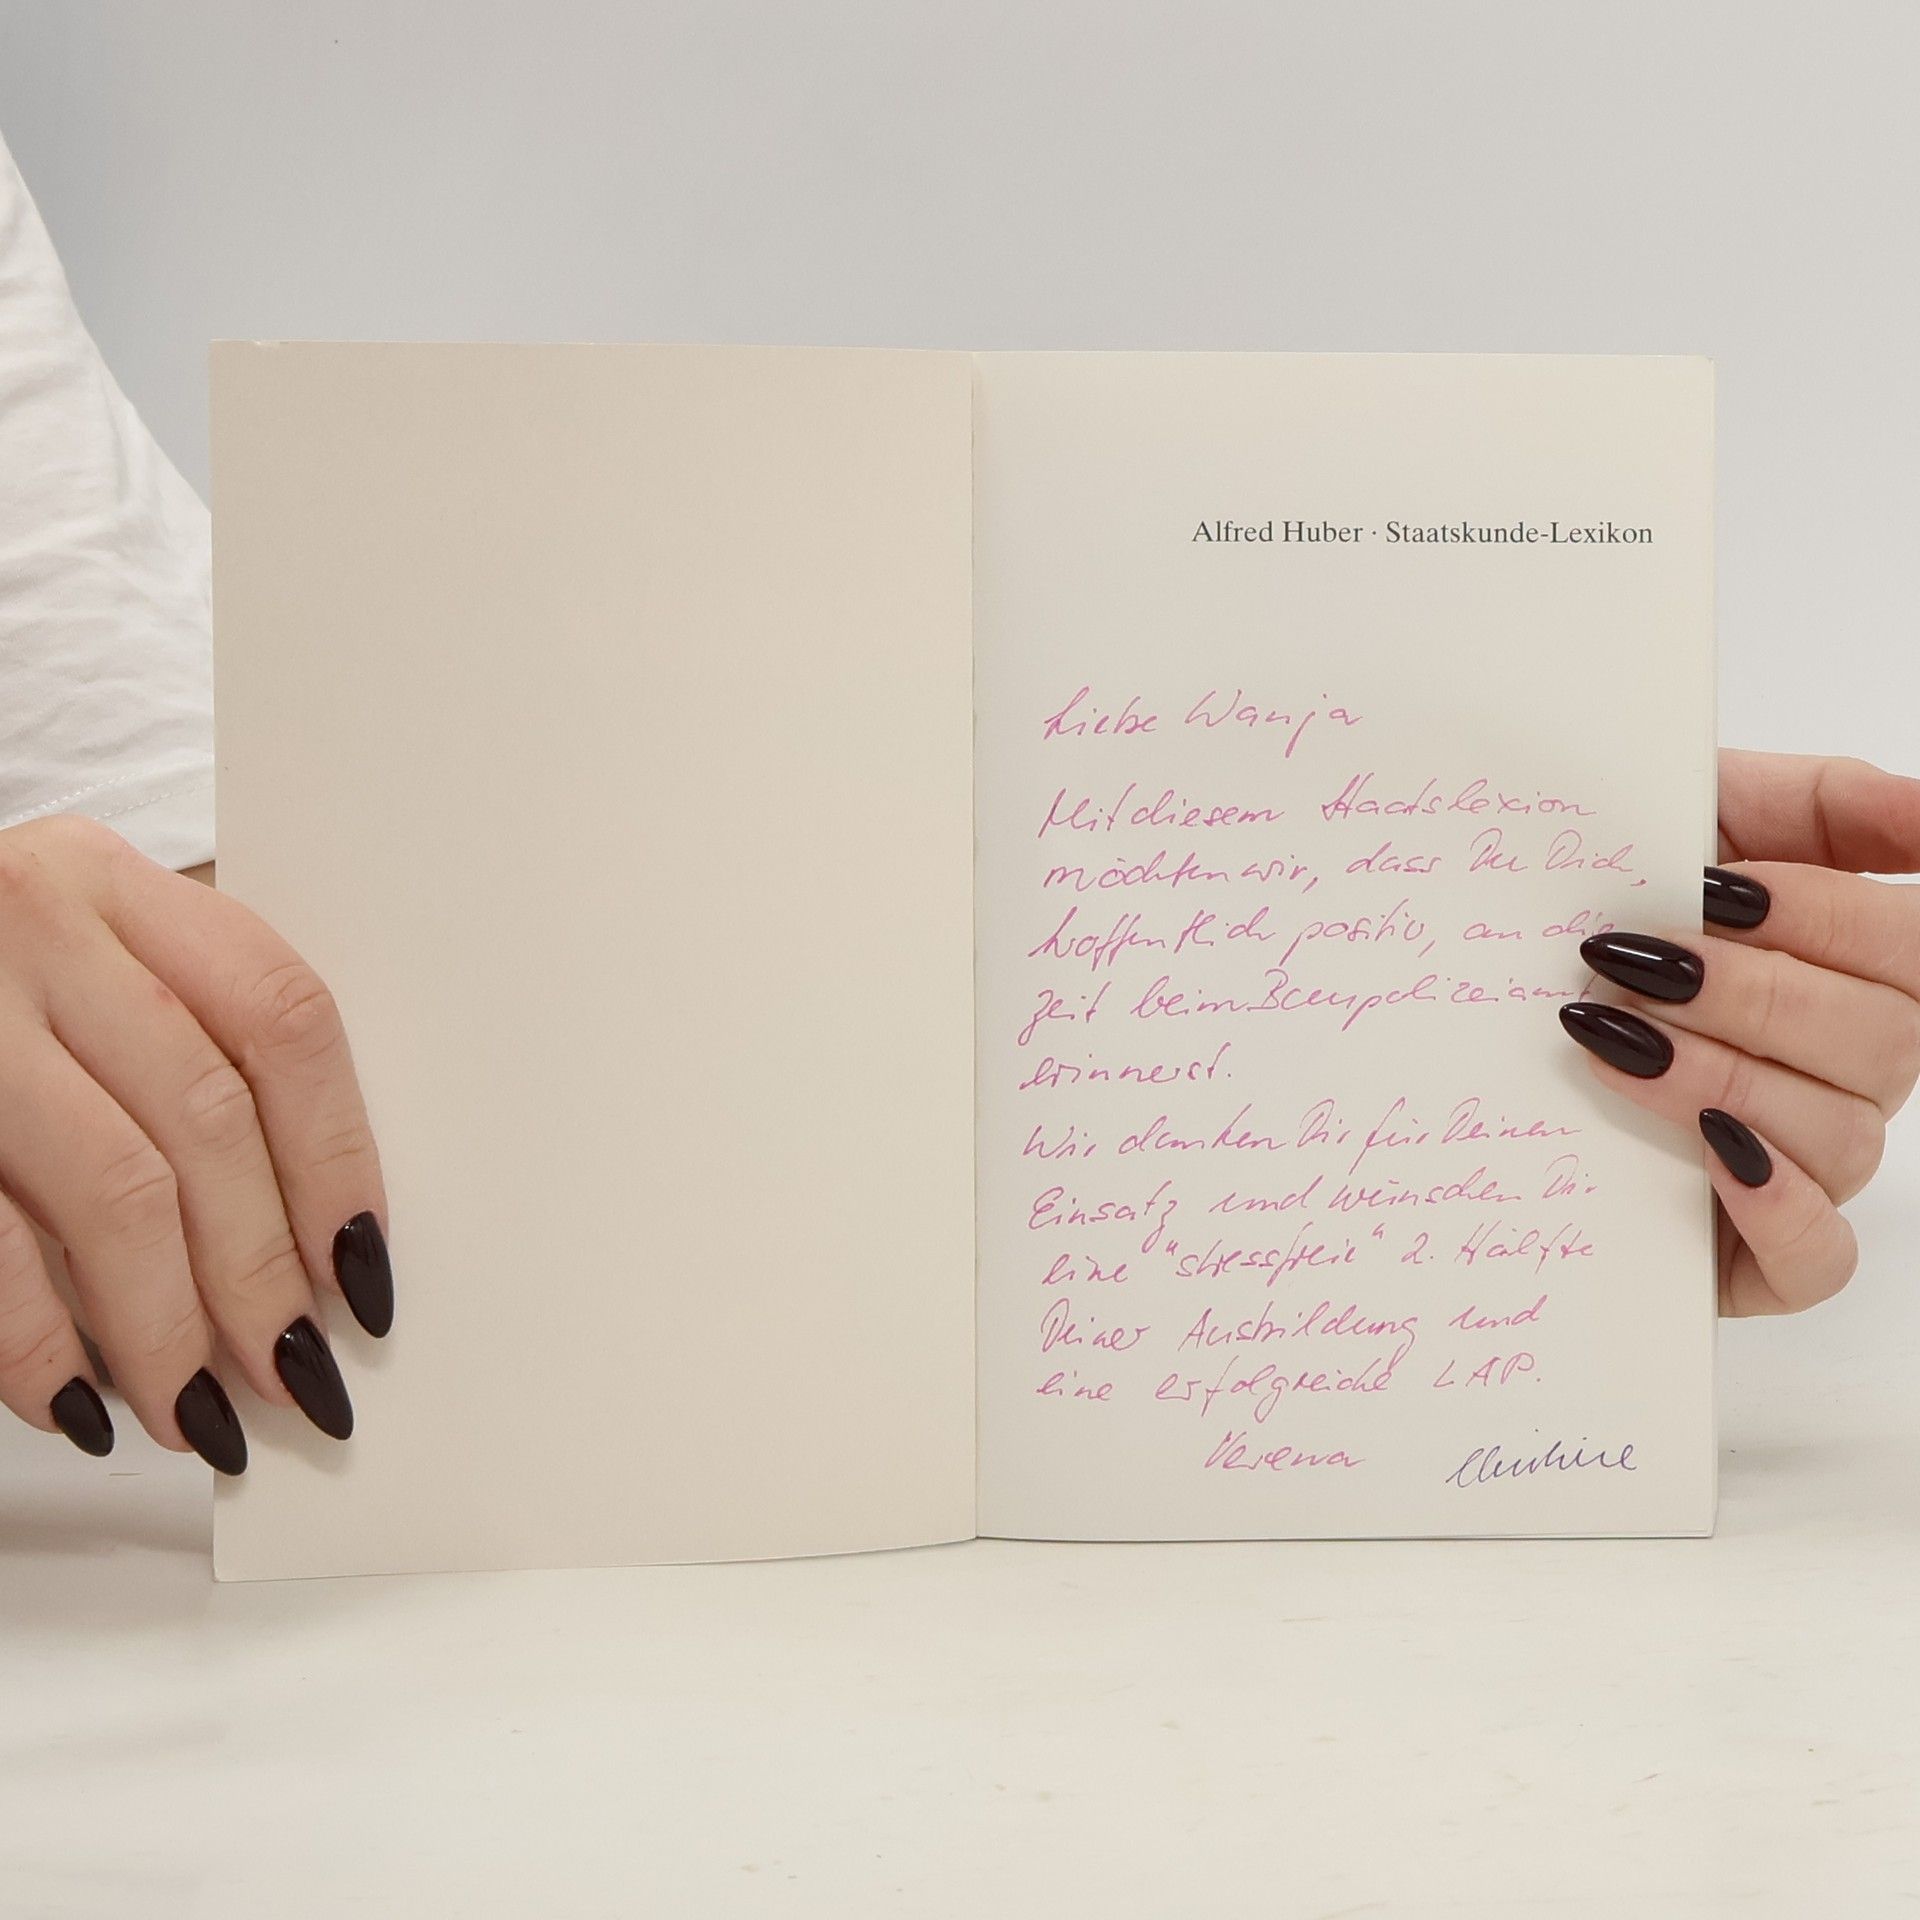 Alfred Huber · Staatskunde-Lexikon
Liebe Wanja
Mit diesem Staatslexion
möchten wir, dass Du Dich,
hoffentlich positiv, an die
Zeit beim Baupolizeiamt
erinnerst.
Wir danken Dir für Deinen
Einsatz und wünschen Dir
eine "stressfreie" 2. Hälfte
Deiner Ausbildung und
eine erfolgreiche LAP.
Verena